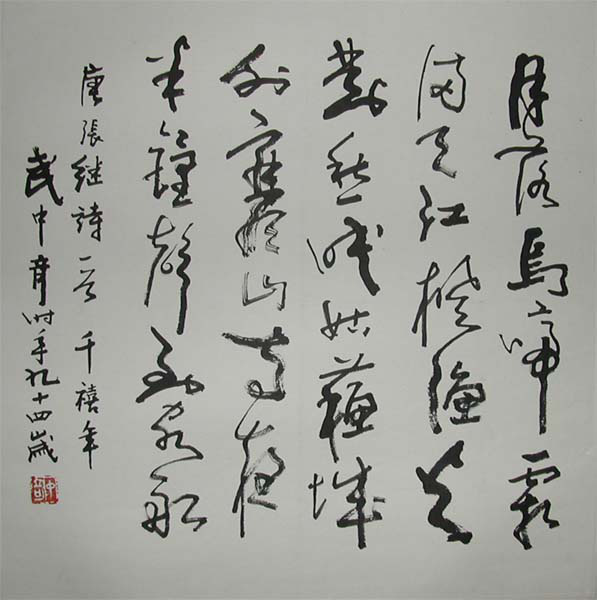 月落烏啼霜
满天江楓漁火
對愁眠姑蘇城
外寒山寺夜
半鐘聲到客船
唐張继詩一首 千禧年
武中奇时年九十四歲